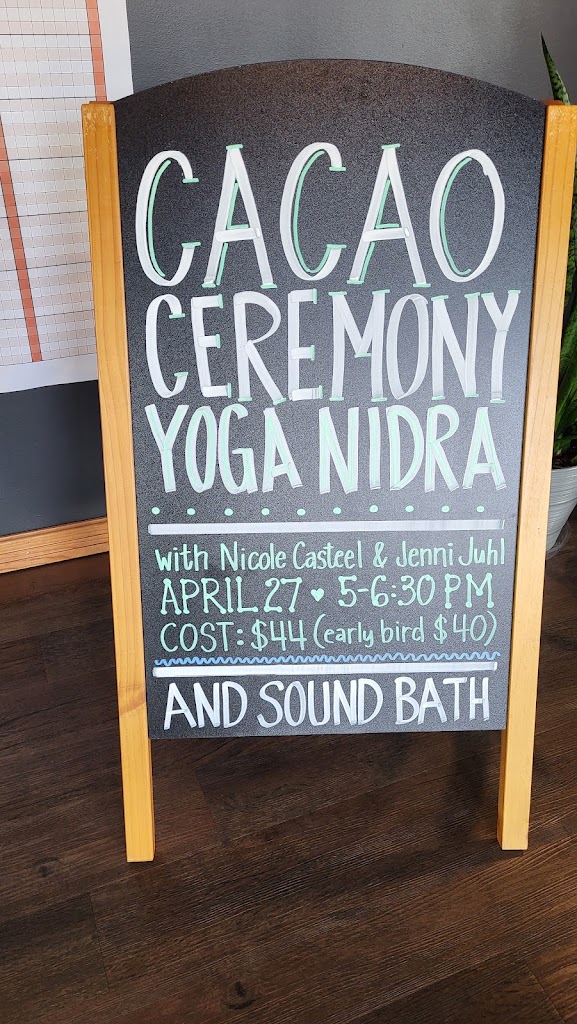 CACAO
CEREMONY
YOGA NIDRA
with Nicole Casteel & Jenni Juhl
APRIL 27 ♥ 5-6:30 PM
COST: $44 (early bird $40)
AND SOUND BATH